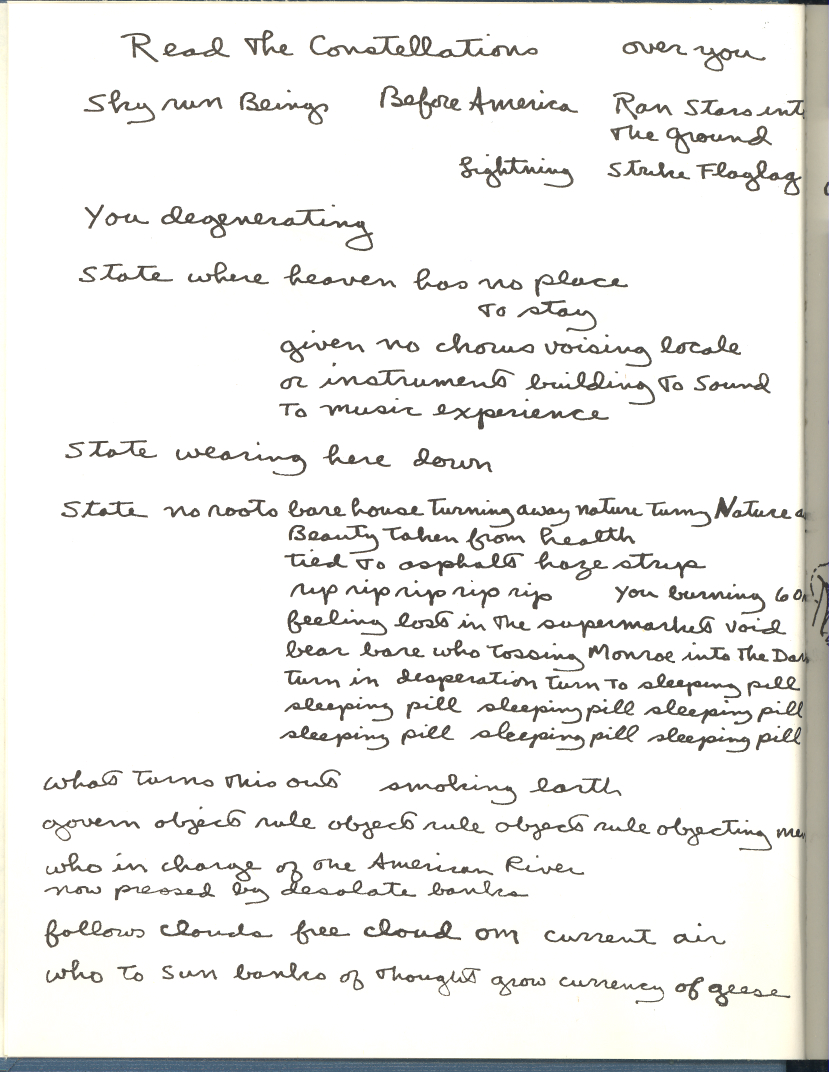 Read The Constellations over you
Sky run Beings Before America Ran Stars int
The ground
Lightning Strike Flaglag
You degenerating
State where heaven has no place
To stay
given no chorus voising locale
or instruments building To Sound
To music experience
State wearing here down
State no roots bare house turning away nature turning Nature a
Beauty Taken from health
tied To asphalt haze strip
rip rip rip rip rip You burning 60
feeling lost in The supermarkets void
bear bare who tossing Monroe into The Dar
turn in desperation turn To sleeping pill
sleeping pill sleeping pill sleeping pill
sleeping pill sleeping pill sleeping pill
whats turns this out smoking earth
govern object rule object rule object rule objecting me
who in charge of one American River
now pressed by desolate banks
follows clouds free cloud om current air
who To Sun banks of Thought grow currency of geese